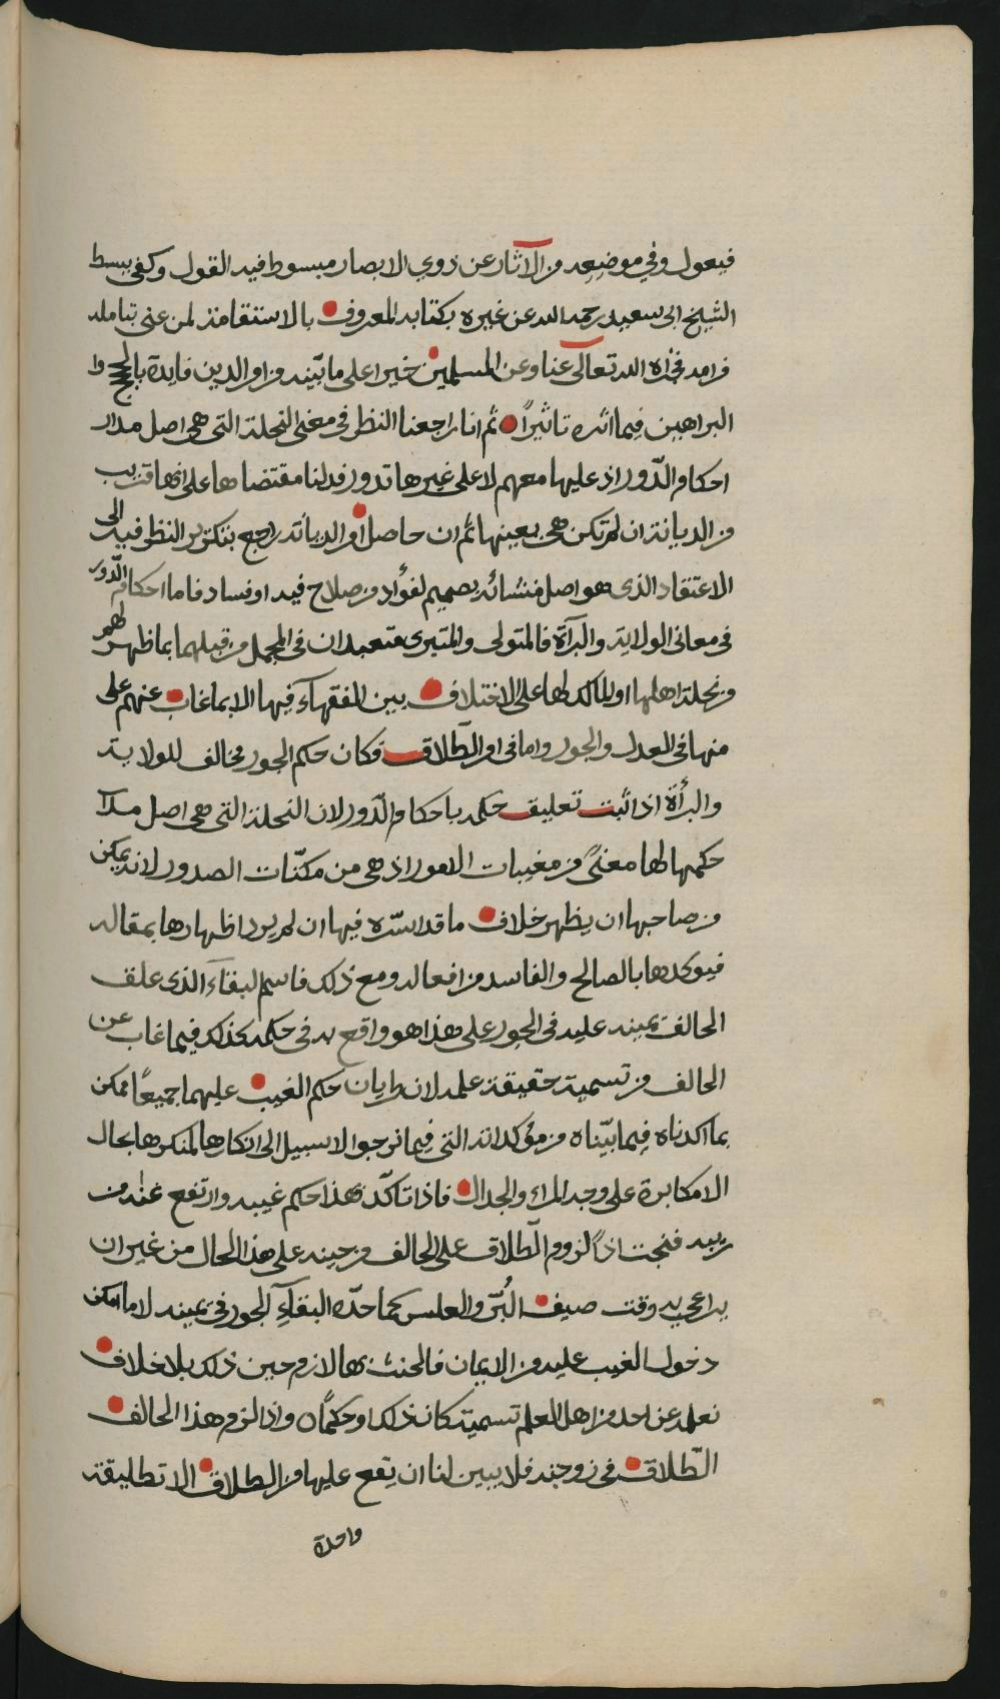 فيعول وفي موضعه من الآثار عن ذوي الابصار مبسوط فيه القول وكفى ببسط
الشيخ ابى سعيد رحمه الله عن غيره بكتابه المعروف بالاستقامة لمن عنى بتامله
فرامه فجزاه الله تعالى عنا وعن المسلمين خيرا على ما بيّنه من امر الدين فايدة بالحجج وا
البراهين فيما اثره تاثيراً ثم انا راجعنا النظر فى معنى النحلة التى هى اصل مدار
احكام الدّور اذ عليها معهم لا على غيرها تدور فدلنا مقتضاها على انها قريب
من الديانة ان لم تكن هى بعينها ثم ان حاصل امر الديانة راجع بتكرير النظر فيه الى
الاعتقاد الذى هو اصل منشائه بصميم لفؤاد من صلاح فيه او فساد فاما احكام الدّور
فى معانى الولاية والبرآة فالمتولى والمتبرى متعبدان فى المجمل من قبلهما بما ظهر لهم
من نحلة اهلها او المالك لها على الاختلاف بين الفقهآء فيها الا بما غاب عنهم على
منها فى العدل والجور واما فى امر الطّلاق فكان حكم الجور مخالف للولاية
والبرأة اذا ثبت تعليق حكمه باحكام الدّور لان النحلة التى هى اصل مدا
حكمها لها معنىً من مغيبات الامور اذ هى من مكنّات الصدور لانه يمكن
من صاحبها ان يظهر خلاف ما قد اسّره فيها ان لم يرد اظهارها بمقاله
فيوكدها بالصالح والفاسد من افعاله ومع ذلك فاسم البقآء الذى علق
الحالف يمينه عليه فى الجور على هذا هو واقع به فى حكمه كذلك فيما غاب عن
الحالف من تسمية حقيقة علمه لان طريان حكم الغيب عليهما جميعًا ممكن
بما اكدناه فيما بيّناه من مؤكداته التى فيما نرجوا لا سبيل الى انكارها لمنكرها بحال
الا مكابرة على وجه المراء والجدال فاذا تاكّد هذا حكم غيبه وارتفع عنه من
ريبه فنجت اذاً لزوم الطّلاق على الحالف من حينه على هذا الحال من غير ان
يراعى به وقت صيف البُرّ والعلس كما حدّه البقآء الجور فى يمينه لما امكن
دخول الغيب عليه من الايمان فالحنث بها لازم حين ذلك بلا خلاف
نعلمه عن احد من اهل العلم تسمية كان ذلك او حكمًا واذا لزم هذا الحالف
الطّلاق فى زوجته فلا يبين لنا ان يقع عليها من الطلاق الا تطليقة
واحدة